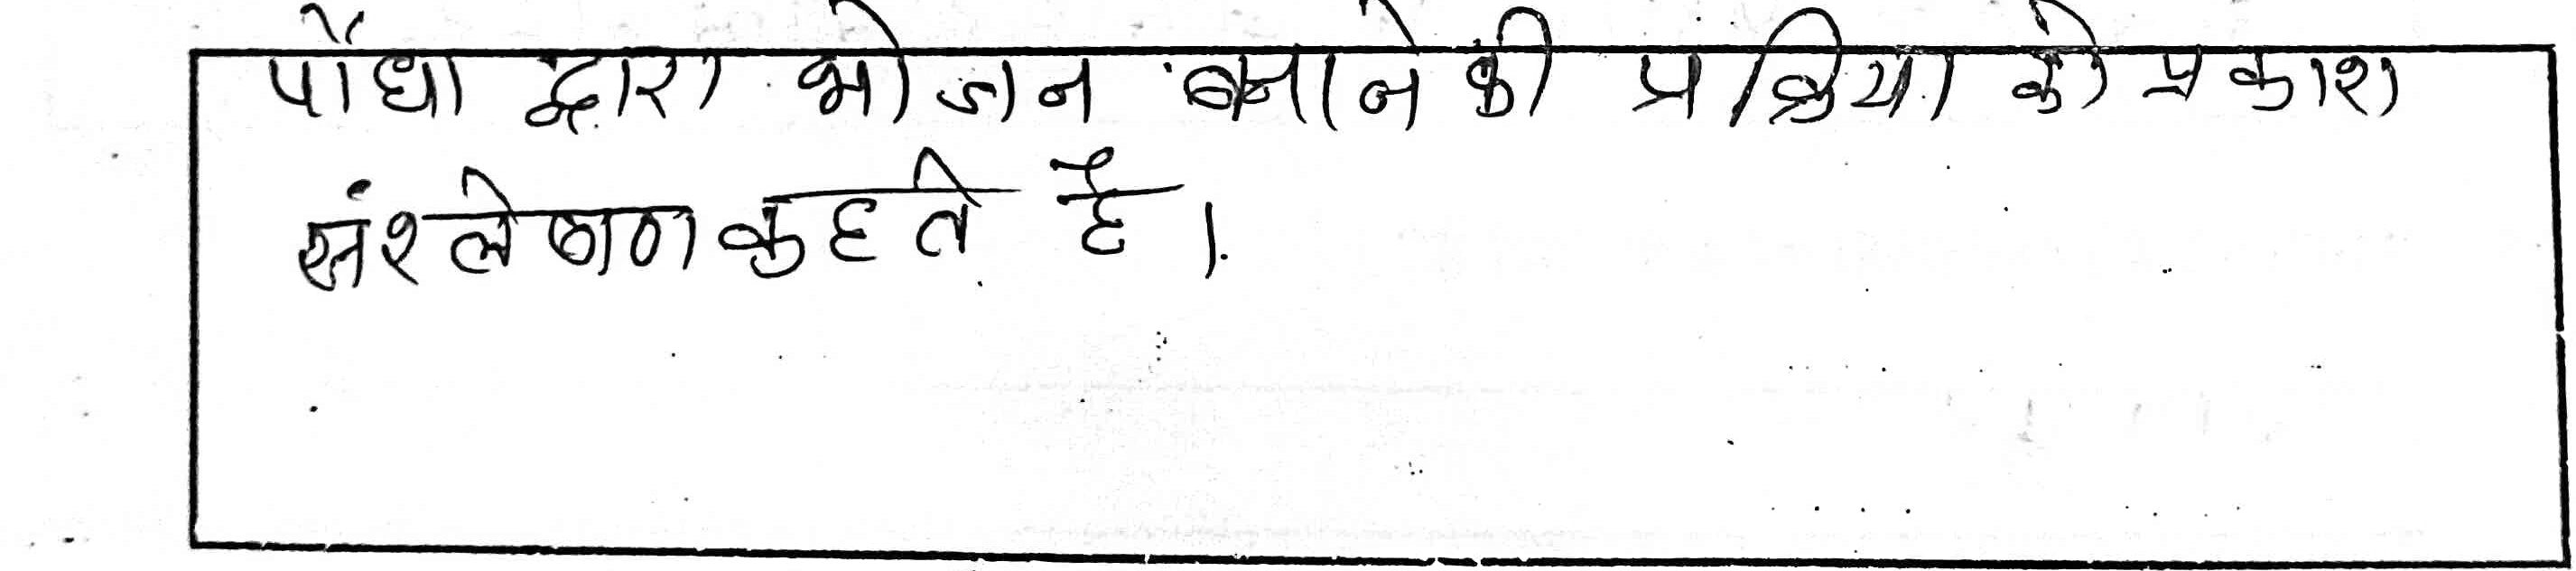 पौधा द्वारा भोजन बनाने की प्रक्रिया को प्रकाश
संश्लेषण कहते है।